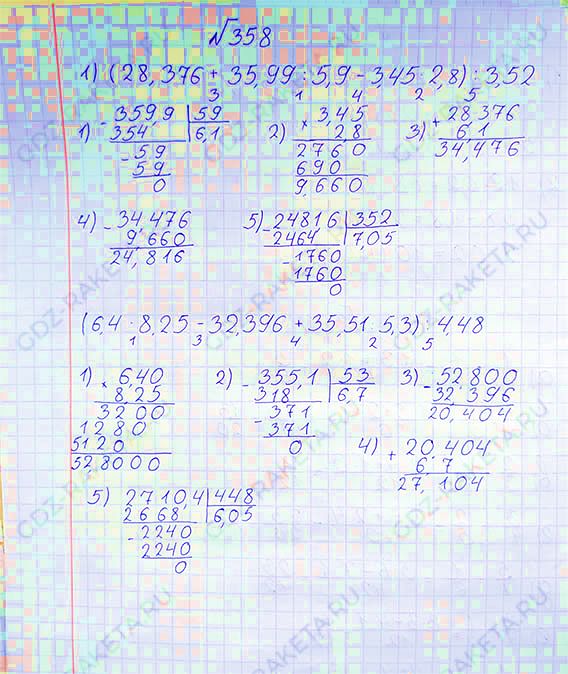 №358
1) (28,376 + 35,99 : 5,9 - 3,45 · 2,8) : 3,52
3 1 4 2 5
1) - 359,9 | 59
354 | 6,1
- 59
59
0
2) × 3,45
28
2760
690
9,660
3) + 28,376
6,1
34,476
4) - 34,476
9,660
24,816
5) - 2481,6 | 352
2464 | 7,05
- 1760
1760
0
(6,4 · 8,25 - 32,396 + 35,51 : 5,3) : 4,48
1 3 4 2 5
1) × 6,40
8,25
3200
1280
5120
52,8000
2) - 355,1 | 53
318 | 6,7
- 371
371
0
3) - 52,800
32,396
20,404
4) + 20,404
6,7
27,104
5) 2710,4 | 448
2668 | 6,05
- 2240
2240
0
GDZ-RAKETA.RU